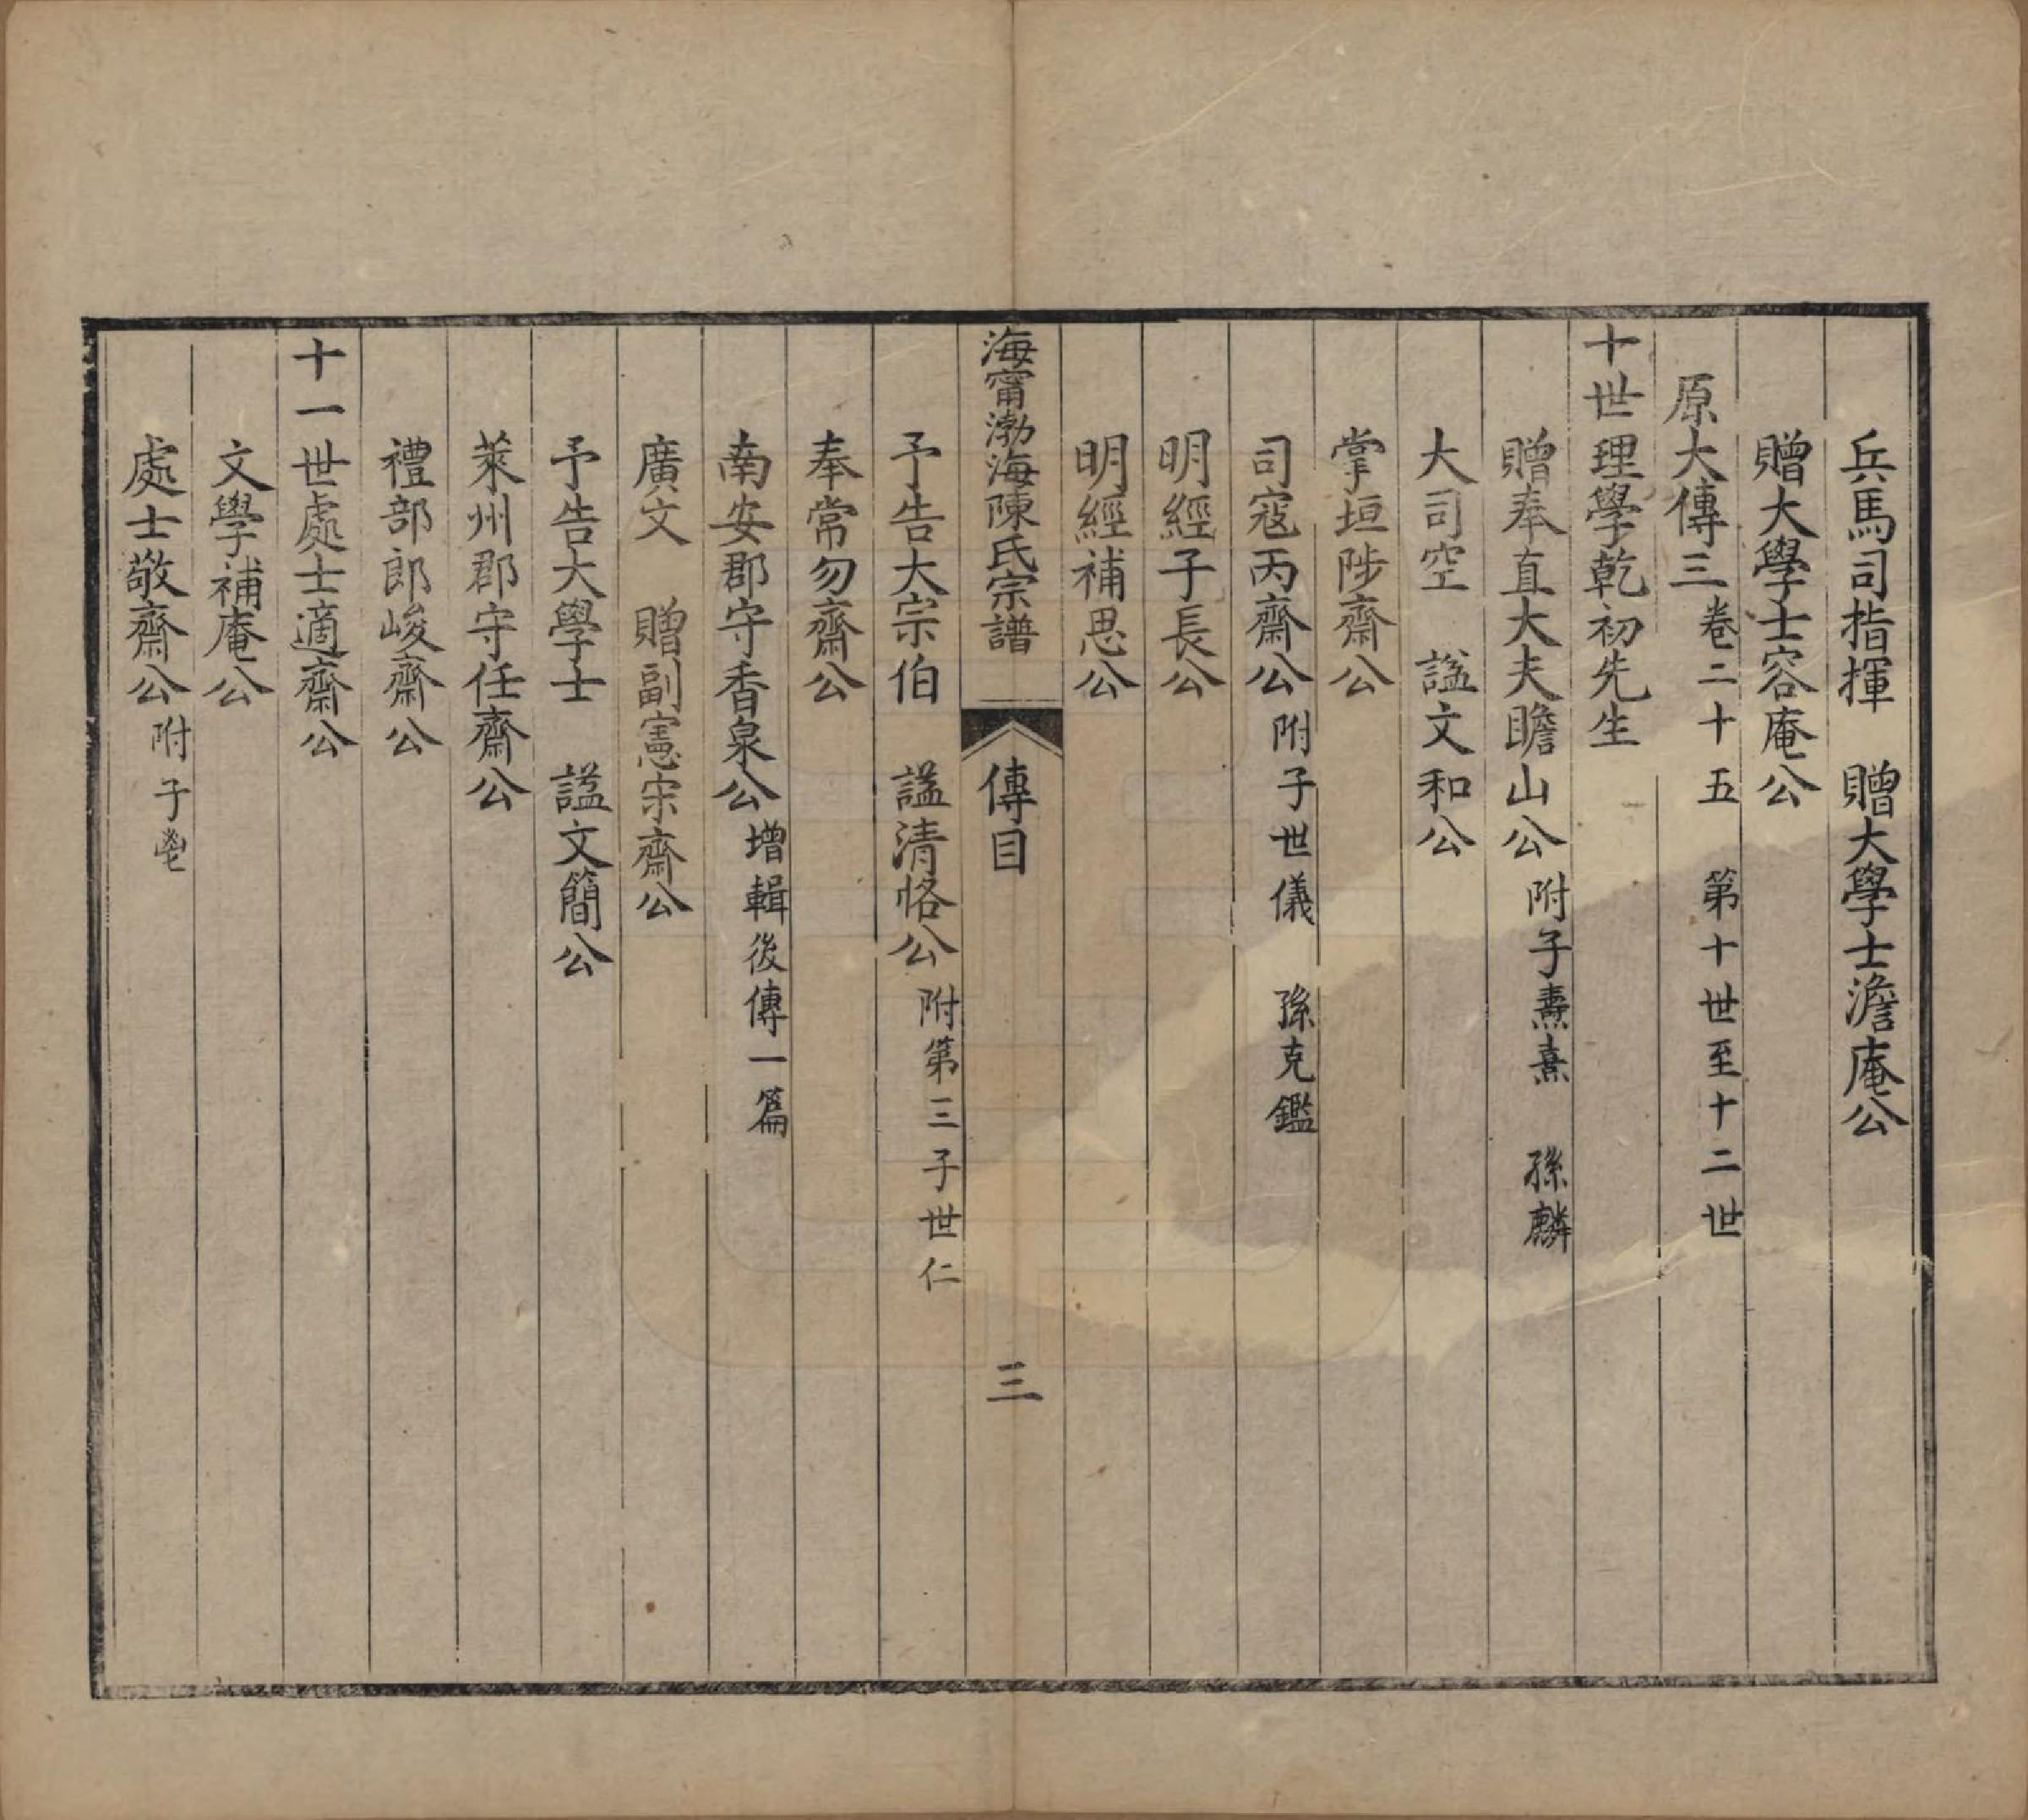 兵馬司指揮　贈大學士澹庵公
贈大學士容庵公
原大傳三卷二十五　第十世至十二世
十世理學乾初先生
贈奉直大夫瞻山公附子燾熹　孫麟
大司空　諡文和公
掌垣陟齋公
司寇丙齋公附子世儀　孫克鑑
明經子長公
明經補思公
海甯渤海陳氏宗譜　傳目　三
予告大宗伯　諡清恪公附第三子世仁
奉常勿齋公
南安郡守香泉公增輯後傳一篇
廣文　贈副憲宋齋公
予告大學士　諡文簡公
萊州郡守任齋公
禮部郎峻齋公
十一世處士適齋公
文學補庵公
處士敬齋公附子